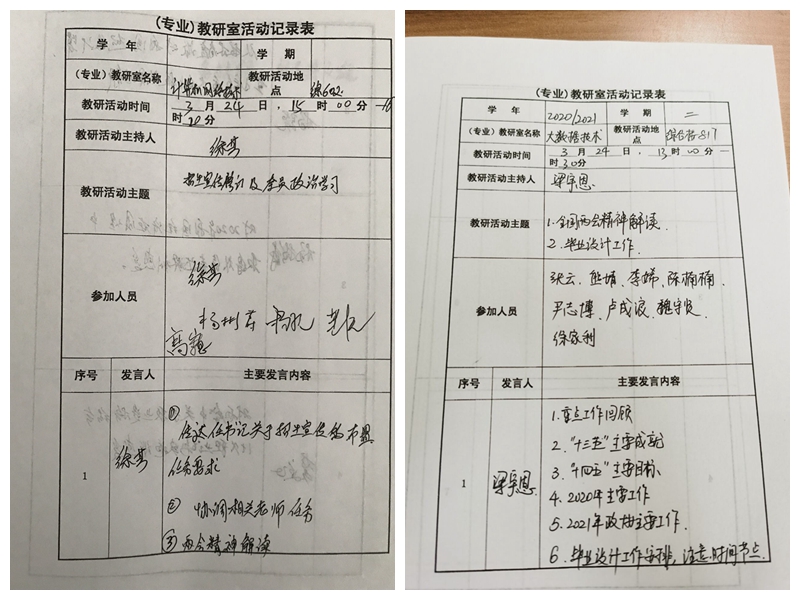 (专业)教研室活动记录表
学 年
学 期
(专业)教研室名称
计算机网络技术
教研活动地点
综602
教研活动时间
3 月 24 日, 15 时 00 分 —16
时 20 分
教研活动主持人
徐其
教研活动主题
招生宣传研讨及全员政治学习
参加人员
徐其
序号 发言人 主要发言内容
1
徐其
①
传达任书记关于招生宣传的布置
任务要求
② 协调相关老师任务
③ 两会精神解读
(专业)教研室活动记录表
学 年
2020/2021
学 期
二
(专业)教研室名称
大数据技术
教研活动地点
综合楼-817
教研活动时间
3 月 24 日, 13 时 00 分—
时30分
教研活动主持人
梁宇恩
教研活动主题
1.全国两会精神解读.
2.毕业设计工作.
参加人员
张云、熊婧、李娣、陈楠楠、
尹志博、卢成浪、魏守贤、
徐家利
序号 发言人 主要发言内容
1
梁宇恩
1.重点工作回顾
2.“十三五”主要成就
3.“十四五”主要目标
4.2020年主要工作
5.2021年政府主要工作.
6.毕业设计工作安排,注意时间节点.